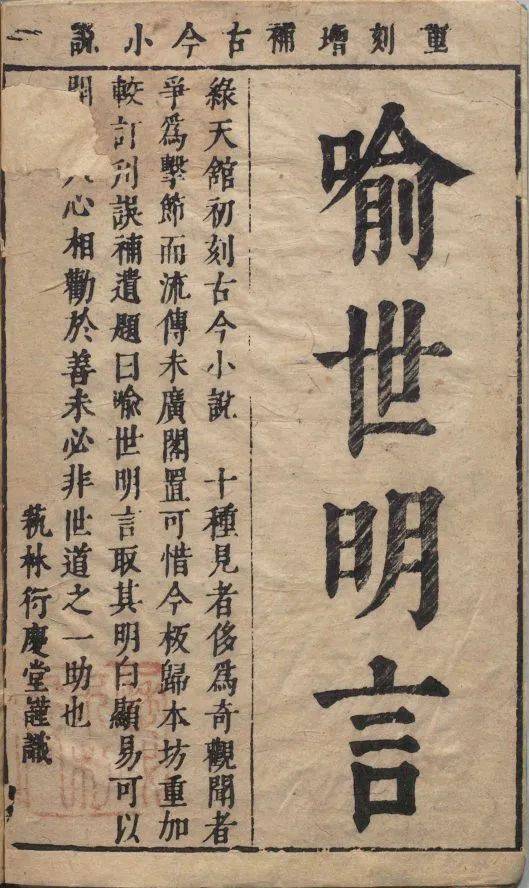 重刻增補古今小説
喻世明言
綠天館初刻古今小說 十種見者侈為奇觀聞者
爭為擊節而流傳未廣閣置可惜今板歸本坊重加
較訂刋誤補遺題曰喻世明言取其明白顯易可以
開人心相勸於善未必非世道之一助也
萟林衍慶堂謹識